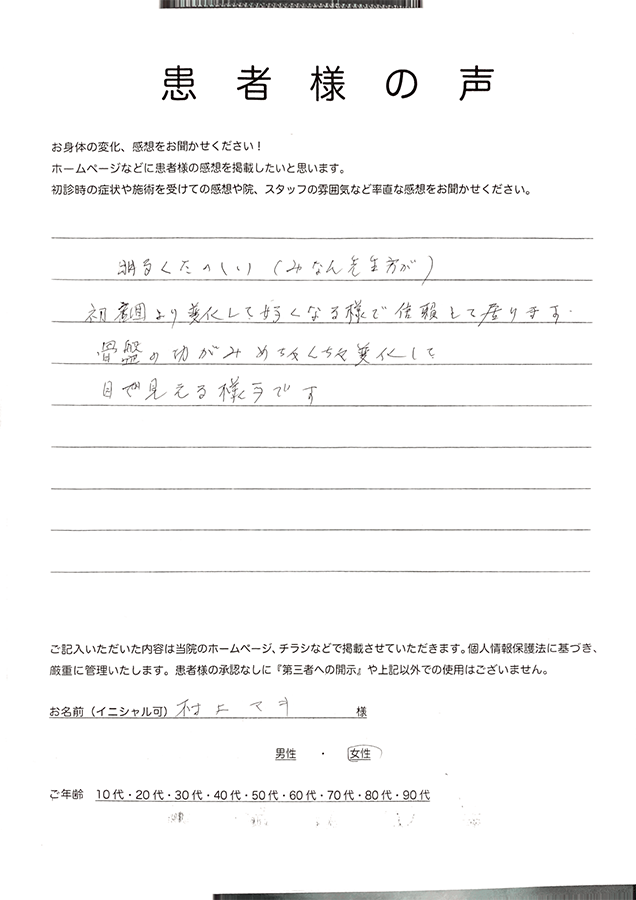 患者様の声
お身体の変化、感想をお聞かせください！
ホームページなどに患者様の感想を掲載したいと思います。
初診時の症状や施術を受けての感想や院、スタッフの雰囲気など率直な感想をお聞かせください。
明るくたのしい（みなん先生方が）
初回より変化して好くなる様で信頼して居ります。
骨盤のゆがみめちゃんちゃ変化して
目で見える様子です
ご記入いただいた内容は当院のホームページ、チラシなどで掲載させていただきます。個人情報保護法に基づき、
厳重に管理いたします。患者様の承認なしに『第三者への開示』や上記以外での使用はございません。
お名前（イニシャル可） 村上マキ 様
男性 ・ 女性
ご年齢 10代・20代・30代・40代・50代・60代・70代・80代・90代